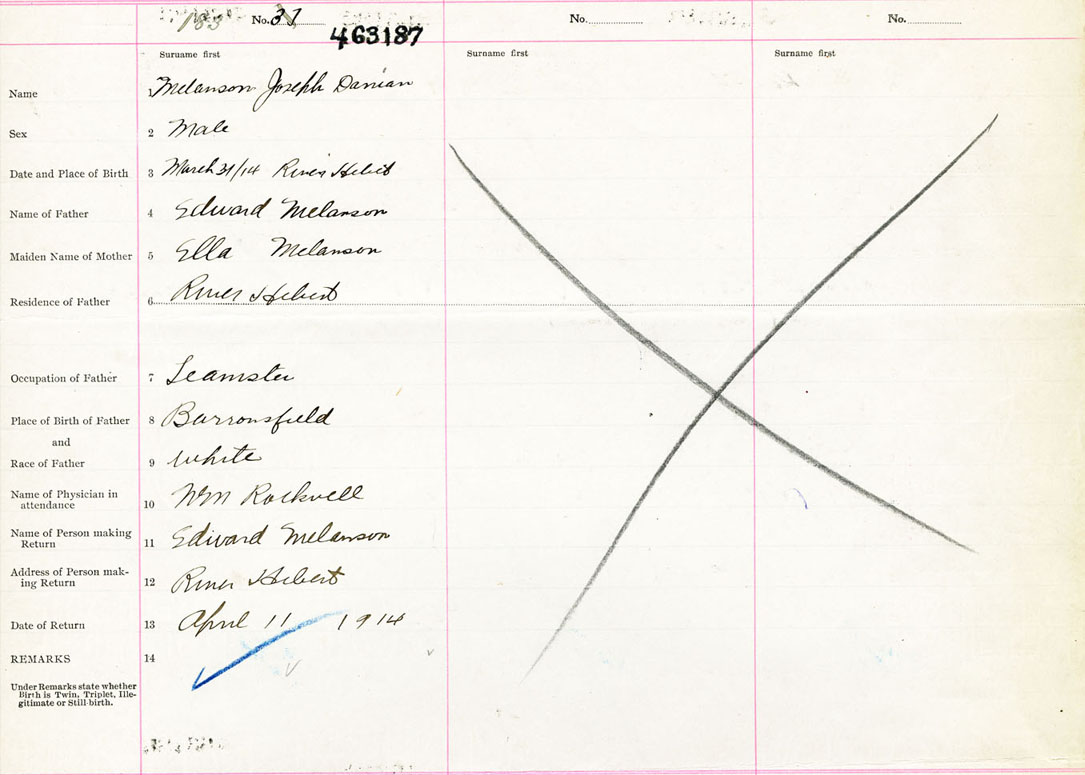 No. 37
No.
No.
463187
Surname first
Surname first
Surname first
Name 1 Melanson Joseph Damian
Sex 2 Male
Date and Place of Birth 3 March 31/14 River Hebert
Name of Father 4 Edward Melanson
Maiden Name of Mother 5 Ella Melanson
Residence of Father 6 River Hebert
Occupation of Father 7 Teamster
Place of Birth of Father 8 Barronsfield
and
Race of Father 9 White
Name of Physician in
attendance 10 Wm Rockwell
Name of Person making
Return 11 Edward Melanson
Address of Person mak-
ing Return 12 River Hebert
Date of Return 13 April 11 1914
REMARKS 14
Under Remarks state whether
Birth is Twin, Triplet, Ille-
gitimate or Still-birth.